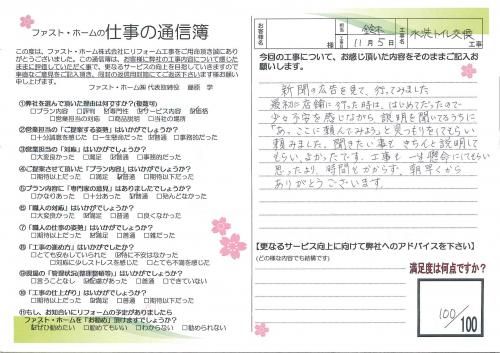 ファスト・ホームの仕事の通信簿
この度は、ファスト・ホーム株式会社にリフォーム工事をご用命頂き誠にあり
がとうございました。この通信簿は、お客様に弊社の工事内容について感じた
ままに評価していただく事で、更なるサービスの向上を目指していきますので
率直なご意見をご記入頂き、同封の返信用封筒にてご返送下さいます様お願い
申し上げます。
ファスト・ホーム㈱ 代表取締役 藤原 学
①弊社を選んで頂いた理由は何ですか?(複数可)
□プラン内容 □評判 □専門性 □サービス内容 □価格
□営業担当の対応 □商品説明 □当社の場所
②営業担当の「ご提案する姿勢」はいかがでしょうか?
□十分誠意を感じた □一生懸命だった □普通 □事務的だった
③営業担当の「対応」はいかがでしょうか?
□大変良かった □満足 □期待以下 □事務的だった
④ご提案させて頂いた「プラン内容」はいかがでしたか?
□期待以上だった □満足 □普通 □期待以下だった
⑤プラン内容に「専門家の意見」はありましたか?
□かなりあった □十分あった □普通 □殆んどなかった
⑥「職人の対応」はいかがでしょうか?
□大変良かった □満足 □普通 □良くなかった
⑦「職人の仕事の姿勢」はいかがでしょうか?
□期待以上だった □満足 □普通 □雑だった
⑧「工事の進め方」はいかがでしたか?
□とても安心していられた □特に不安はなかった
□対応に少しストレスを感じた □とても不満を感じた
⑨現場の「管理状況(整理整頓等)」はいかがでしょうか?
□言うことなし □配慮があった □普通 □できていない
⑩「工事の仕上がり」はいかがでしょうか?
□期待以上だった □満足 □普通 □期待以下だった
⑪もし、お知合いにリフォームの予定がありましたら
ファスト・ホームを「お勧め」頂けますでしょうか?
□ぜひ勧めたい □勧めてもいい □わからない □勧められない
お客様名
様
担当 鈴木
工事日 11月5日
工事名 水洗トイレ交換
工事
今回の工事について、お感じ頂いた内容をそのままご記入お
願いします。
新聞の広告を見て、行ってみました
最初に店舗に行った時は、はじめてだったので
少々不安を感じながら、説明を聞いてるうちに
「あ、ここに頼んでみよう」と見つもりをしてもらい
頼みました。聞きたい事もきちんと説明して
もらい、よかったです。工事も一生懸命にしてもらい
思ったより、時間もかからず、朝早くから
ありがとうございます。
【更なるサービス向上に向けて弊社へのアドバイスを下さい】
(どの様な内容でも結構です)
満足度は何点ですか?
100/
100